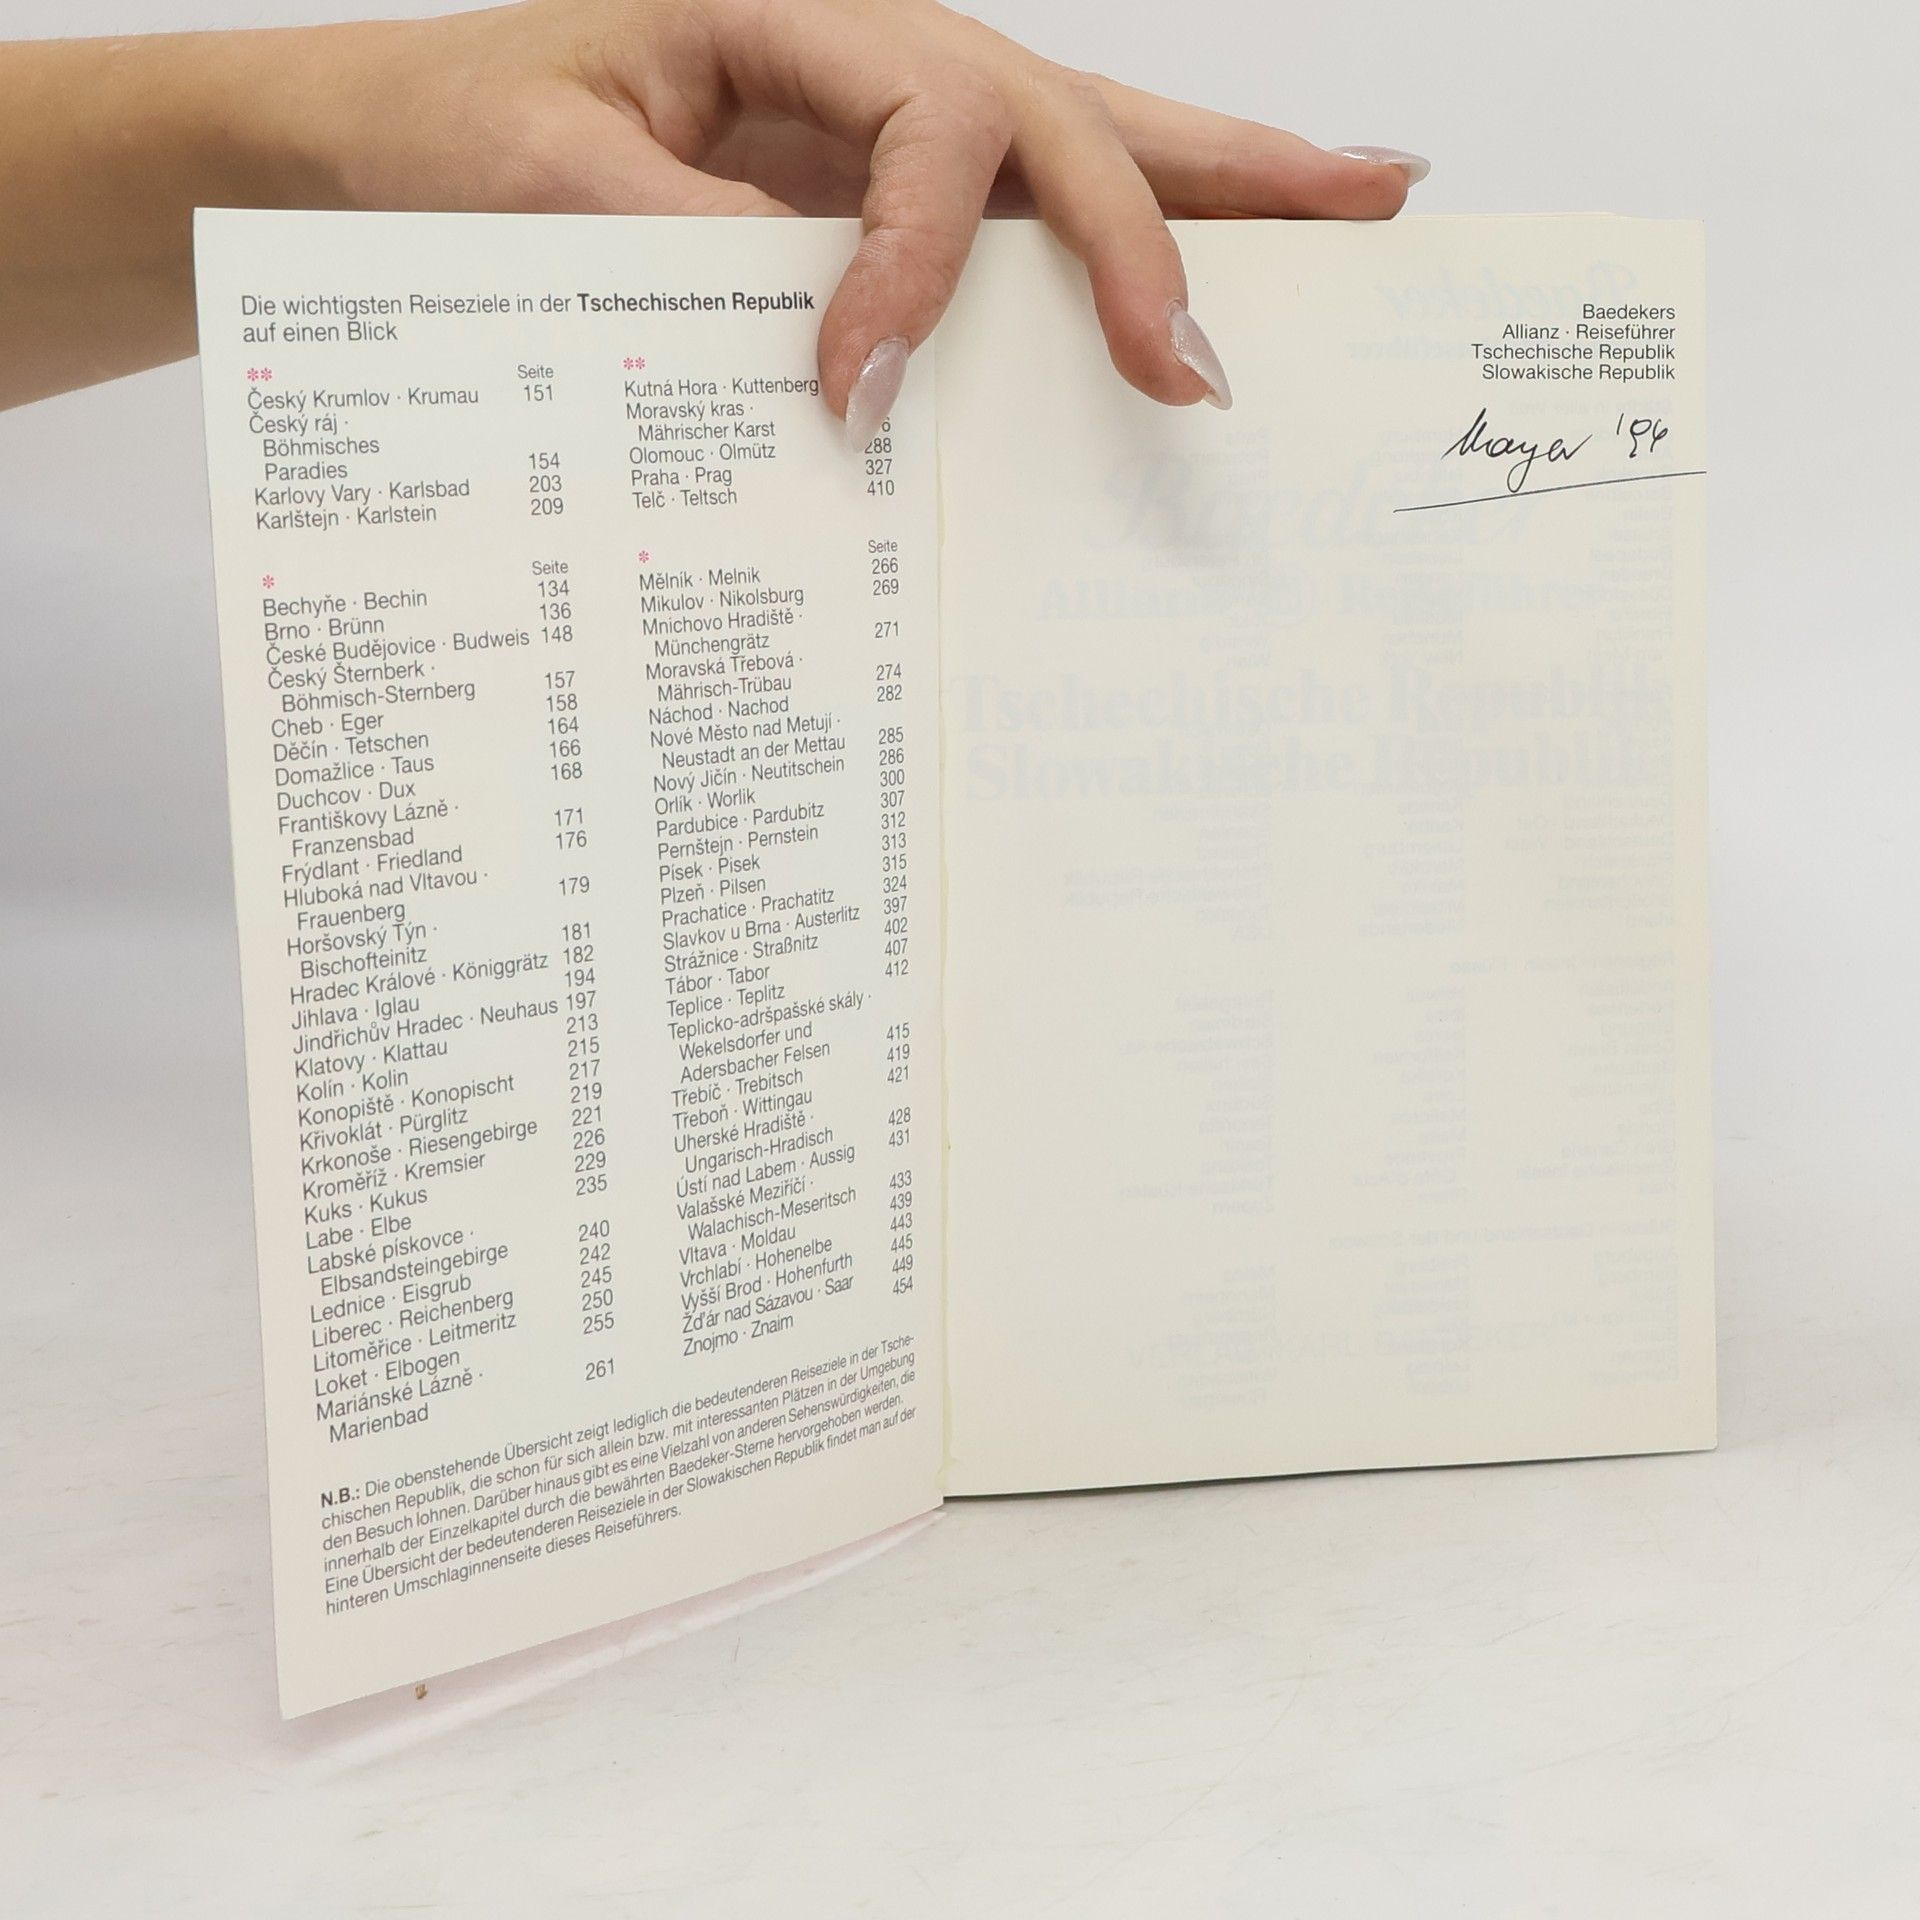 Die wichtigsten Reiseziele in der Tschechischen Republik
auf einen Blick
** Seite
Český Krumlov · Krumau 151
Český ráj ·
Böhmisches
Paradies 154
Karlovy Vary · Karlsbad 203
Karlštejn · Karlstein 209
**
Kutná Hora · Kuttenberg
Moravský kras ·
Mährischer Karst 6
Olomouc · Olmütz 288
Praha · Prag 327
Telč · Teltsch 410
* Seite
Bechyňe · Bechin 134
Brno · Brünn 136
České Budějovice · Budweis 148
Český Šternberk ·
Böhmisch-Sternberg 157
Cheb · Eger 158
Děčín · Tetschen 164
Domažlice · Taus 166
Duchcov · Dux 168
Františkovy Lázně ·
Franzensbad 171
Frýdlant · Friedland 176
Hluboká nad Vltavou ·
Frauenberg 179
Horšovský Týn ·
Bischofteinitz 181
Hradec Králové · Königgrätz 182
Jihlava · Iglau 194
Jindřichův Hradec · Neuhaus 197
Klatovy · Klattau 213
Kolín · Kolin 215
Konopiště · Konopischt 217
Křivoklát · Pürglitz 219
Krkonoše · Riesengebirge 221
Kroměříž · Kremsier 226
Kuks · Kukus 229
Labe · Elbe 235
Labské pískovce ·
Elbsandsteingebirge 240
Lednice · Eisgrub 242
Liberec · Reichenberg 245
Litoměřice · Leitmeritz 250
Loket · Elbogen 255
Mariánské Lázně ·
Marienbad 261
* Seite
Mělník · Melnik 266
Mikulov · Nikolsburg 269
Mnichovo Hradiště ·
Münchengrätz 271
Moravská Třebová ·
Mährisch-Trübau 274
Náchod · Nachod 282
Nové Město nad Metují ·
Neustadt an der Mettau 285
Nový Jičín · Neutitschein 286
Orlík · Worlik 300
Pardubice · Pardubitz 307
Pernštejn · Pernstein 312
Písek · Pisek 313
Plzeň · Pilsen 315
Prachatice · Prachatitz 324
Slavkov u Brna · Austerlitz 397
Strážnice · Straßnitz 402
Tábor · Tabor 407
Teplice · Teplitz 412
Teplicko-adršpašské skály ·
Wekelsdorfer und
Adersbacher Felsen 415
Třebíč · Trebitsch 419
Třeboň · Wittingau 421
Uherské Hradiště ·
Ungarisch-Hradisch 428
Ústí nad Labem · Aussig 431
Valašské Meziříčí ·
Walachisch-Meseritsch 433
Vltava · Moldau 439
Vrchlabí · Hohenelbe 443
Vyšší Brod · Hohenfurth 445
Žd'ár nad Sázavou · Saar 449
Znojmo · Znaim 454
N.B.: Die obenstehende Übersicht zeigt lediglich die bedeutenderen Reiseziele in der Tsche-
chischen Republik, die schon für sich allein bzw. mit interessanten Plätzen in der Umgebung
den Besuch lohnen. Darüber hinaus gibt es eine Vielzahl von anderen Sehenswürdigkeiten, die
innerhalb der Einzelkapitel durch die bewährten Baedeker-Sterne hervorgehoben werden.
Eine Übersicht der bedeutenderen Reiseziele in der Slowakischen Republik findet man auf der
hinteren Umschlaginnenseite dieses Reiseführers.
Baedekers
Allianz · Reiseführer
Tschechische Republik
Slowakische Republik
Mayer '94